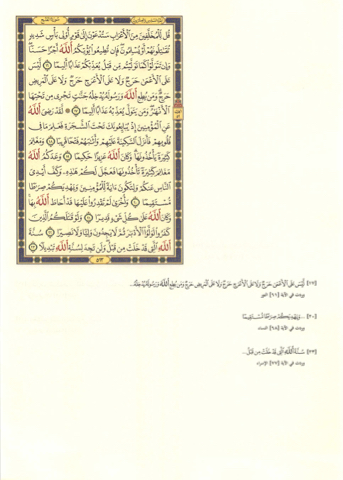 سورة الفتح
قُل لِّلْمُخَلَّفِينَ مِنَ ٱلْأَعْرَابِ سَتُدْعَوْنَ إِلَىٰ قَوْمٍ أُو۟لِى بَأْسٍ شَدِيدٍ
تُقَـٰتِلُونَهُمْ أَوْ يُسْلِمُونَ ۖ فَإِن تُطِيعُوا۟ يُؤْتِكُمُ ٱللَّهُ أَجْرًا حَسَنًا ۖ
وَإِن تَتَوَلَّوْا۟ كَمَا تَوَلَّيْتُم مِّن قَبْلُ يُعَذِّبْكُمْ عَذَابًا أَلِيمًا ﴿١٦﴾ لَّيْسَ
عَلَى ٱلْأَعْمَىٰ حَرَجٌ وَلَا عَلَى ٱلْأَعْرَجِ حَرَجٌ وَلَا عَلَى ٱلْمَرِيضِ
حَرَجٌ ۗ وَمَن يُطِعِ ٱللَّهَ وَرَسُولَهُۥ يُدْخِلْهُ جَنَّـٰتٍ تَجْرِى مِن تَحْتِهَا
ٱلْأَنْهَـٰرُ ۖ وَمَن يَتَوَلَّ يُعَذِّبْهُ عَذَابًا أَلِيمًا ﴿١٧﴾ ۞ لَّقَدْ رَضِىَ ٱللَّهُ
عَنِ ٱلْمُؤْمِنِينَ إِذْ يُبَايِعُونَكَ تَحْتَ ٱلشَّجَرَةِ فَعَلِمَ مَا فِى
قُلُوبِهِمْ فَأَنزَلَ ٱلسَّكِينَةَ عَلَيْهِمْ وَأَثَـٰبَهُمْ فَتْحًا قَرِيبًا ﴿١٨﴾ وَمَغَانِمَ
كَثِيرَةً يَأْخُذُونَهَا ۗ وَكَانَ ٱللَّهُ عَزِيزًا حَكِيمًا ﴿١٩﴾ وَعَدَكُمُ ٱللَّهُ
مَغَانِمَ كَثِيرَةً تَأْخُذُونَهَا فَعَجَّلَ لَكُمْ هَـٰذِهِۦ وَكَفَّ أَيْدِىَ
ٱلنَّاسِ عَنكُمْ وَلِتَكُونَ ءَايَةً لِّلْمُؤْمِنِينَ وَيَهْدِيَكُمْ صِرَٰطًا
مُّسْتَقِيمًا ﴿٢٠﴾ وَأُخْرَىٰ لَمْ تَقْدِرُوا۟ عَلَيْهَا قَدْ أَحَاطَ ٱللَّهُ بِهَا ۚ
وَكَانَ ٱللَّهُ عَلَىٰ كُلِّ شَىْءٍ قَدِيرًا ﴿٢١﴾ وَلَوْ قَـٰتَلَكُمُ ٱلَّذِينَ
كَفَرُوا۟ لَوَلَّوُا۟ ٱلْأَدْبَـٰرَ ثُمَّ لَا يَجِدُونَ وَلِيًّا وَلَا نَصِيرًا ﴿٢٢﴾ سُنَّةَ
ٱللَّهِ ٱلَّتِى قَدْ خَلَتْ مِن قَبْلُ ۖ وَلَن تَجِدَ لِسُنَّةِ ٱللَّهِ تَبْدِيلًا ﴿٢٣﴾
٥١٣
[١٧] لَّيْسَ عَلَى ٱلْأَعْمَىٰ حَرَجٌ وَلَا عَلَى ٱلْأَعْرَجِ حَرَجٌ وَلَا عَلَى ٱلْمَرِيضِ حَرَجٌ وَمَن يُطِعِ ٱللَّهَ وَرَسُولَهُۥ يُدْخِلْهُ...
وردت في الآية [٦١] النور
[٢٠] ...وَيَهْدِيَكُمْ صِرَٰطًا مُّسْتَقِيمًا
وردت في الآية [٦٨] النساء
[٢٣] سُنَّةَ ٱللَّهِ ٱلَّتِى قَدْ خَلَتْ مِن قَبْلُ...
وردت في الآية [٧٧] الإسراء